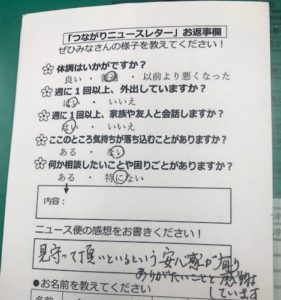 「つながりニュースレター」お返事欄
ぜひみなさんの様子を教えてください!
☆体調はいかがですか?
良い ・ 普通 ・ 以前より悪くなった
☆週に1回以上、外出していますか?
はい ・ いいえ
☆週に1回以上、家族や友人と会話しますか?
はい ・ いいえ
☆ここのところ気持ちが落ち込むことがありますか?
ある ・ ない
☆何か相談したいことや困りごとがありますか?
ある ・ 特にない
内容:
ニュース便の感想をお書きください!
見守って頂いているという安心感が有り
ありがたいことと感謝
しています
●お名前を教えてください